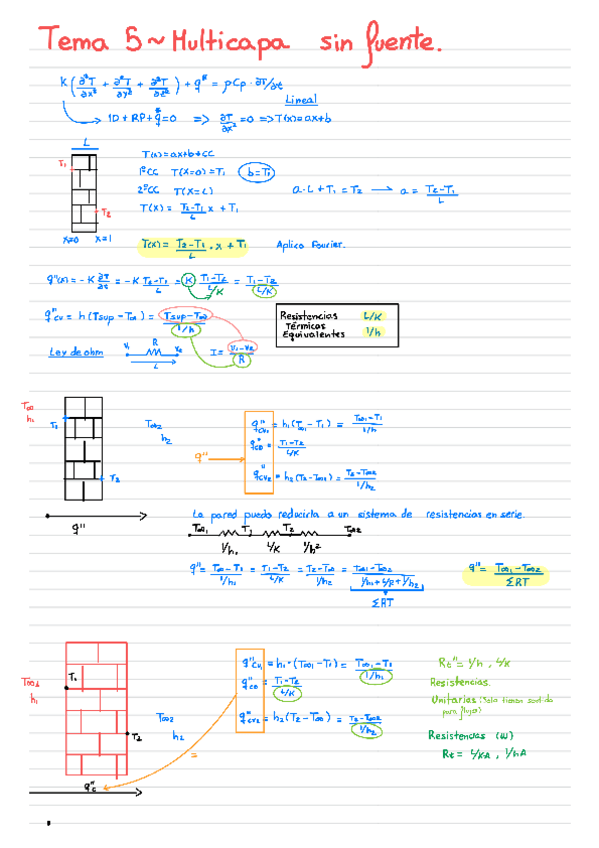 Tema 5 ~ Multicapa sin fuente.
K(∂²T/∂x² + ∂²T/∂y² + ∂²T/∂z²) + q* = ρCp · ∂T/∂t
Lineal
1D + RP + q̇=0 => ∂T/∂x² =0 => T(x)=ax+b
L
T(x)=ax+b+CC
T1
1ºCC T(x=0)=T1 b=T1
2ºCC T(x=L) a·L+T1=T2 → a= T2-T1/L
T2
T(x)= T2-T1/L x + T1
x=0 x=1
T(x)= T2-T1/L · x + T1 Aplico Fourier.
q"(x)= -K ∂T/∂x = -K T2-T1/L = K T1-T2/L = T1-T2/L/K
L/K
q"cv = h(Tsup-T∞) = Tsup-T∞/1/h
Resistencias L/K
Térmicas
Equivalentes 1/h
Ley de ohm V1 R V2 I= V1-V2/R
L
T∞ h1
T1
T∞2 h2
T2
q"
q"cv1 = h1(T∞1-T1) = T∞1-T1/1/h
q"cD = T1-T2/L/K
q"cv2 = h2(T2-T∞2) = T2-T∞2/1/h2
q"
La pared puedo reducirla a un sistema de resistencias en serie.
T∞1 T1 T2 T∞2
1/h1 L/K 1/h2
q"= T∞-T1/1/h1 = T1-T2/L/K = T2-T∞/1/h2 = T∞1-T∞2/1/h1+L/K+1/h2
ΣRT
q"= T∞1-T∞2/ΣRT
T∞1 h1
T1
T∞2 h2
T2
q"cv1 = h1·(T∞1-T1) = T∞1-T1/1/h1
q"cD = T1-T2/L/K
q"cv2 = h2(T2-T∞) = T2-T∞2/1/h2
=
Rt"= 1/h , L/K
Resistencias
Unitarias (Solo tienen sentido
para flujos)
Resistencias (W)
Rt = L/KA , 1/hA